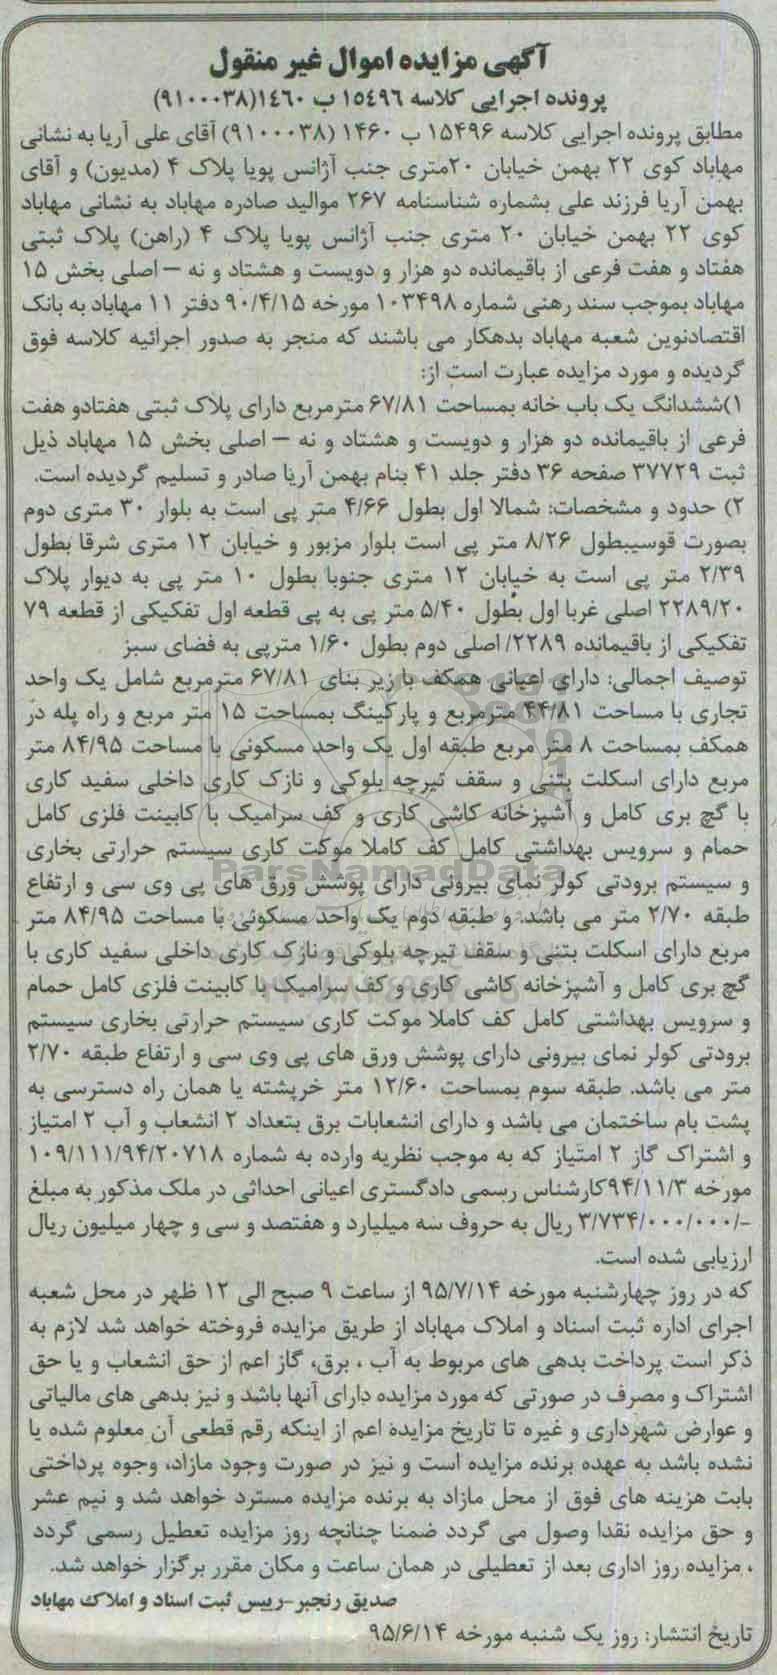 آگهی مزایده اموال غیر منقول
پرونده اجرایی کلاسه ۱۵٤۹٦ ب ۱٤٦۰(۹۱۰۰۰۳۸)
مطابق پرونده اجرایی کلاسه ۱۵۴۹۶ ب ۱۴۶۰ (۹۱۰۰۰۳۸) آقای علی آریا به نشانی
مهاباد کوی ۲۲ بهمن خیابان ۲۰متری جنب آژانس پویا پلاک ۴ (مدیون) و آقای
بهمن آریا فرزند علی بشماره شناسنامه ۲۶۷ موالید صادره مهاباد به نشانی مهاباد
کوی ۲۲ بهمن خیابان ۲۰ متری جنب آژانس پویا پلاک ۴ (راهن) پلاک ثبتی
هفتاد و هفت فرعی از باقیمانده دو هزار و دویست و هشتاد و نه – اصلی بخش ۱۵
مهاباد بموجب سند رهنی شماره ۱۰۳۴۹۸ مورخه ۹۰/۴/۱۵ دفتر ۱۱ مهاباد به بانک
اقتصادنوین شعبه مهاباد بدهکار می باشند که منجر به صدور اجرائیه کلاسه فوق
گردیده و مورد مزایده عبارت است از:
۱)ششدانگ یک باب خانه بمساحت ۶۷/۸۱ مترمربع دارای پلاک ثبتی هفتادو هفت
فرعی از باقیمانده دو هزار و دویست و هشتاد و نه – اصلی بخش ۱۵ مهاباد ذیل
ثبت ۳۷۷۲۹ صفحه ۳۶ دفتر جلد ۴۱ بنام بهمن آریا صادر و تسلیم گردیده است.
۲) حدود و مشخصات: شمالا اول بطول ۴/۶۶ متر پی است به بلوار ۳۰ متری دوم
بصورت قوسیبطول ۸/۲۶ متر پی است بلوار مزبور و خیابان ۱۲ متری شرقا بطول
۲/۳۹ متر پی است به خیابان ۱۲ متری جنوبا بطول ۱۰ متر پی به دیوار پلاک
۲۲۸۹/۲۰ اصلی غربا اول بطول ۵/۴۰ متر پی به پی قطعه اول تفکیکی از قطعه ۷۹
تفکیکی از باقیمانده ۲۲۸۹/ اصلی دوم بطول ۱/۶۰ مترپی به فضای سبز
توصیف اجمالی: دارای اعیانی همکف با زیر بنای ۶۷/۸۱ مترمربع شامل یک واحد
تجاری با مساحت ۴۴/۸۱ مترمربع و پارکینگ بمساحت ۱۵ متر مربع و راه پله در
همکف بمساحت ۸ متر مربع طبقه اول یک واحد مسکونی با مساحت ۸۴/۹۵ متر
مربع دارای اسکلت بتنی و سقف تیرچه بلوکی و نازک کاری داخلی سفید کاری
با گچ بری کامل و آشپزخانه کاشی کاری و کف سرامیک با کابینت فلزی کامل
حمام و سرویس بهداشتی کامل کف کاملا موکت کاری سیستم حرارتی بخاری
و سیستم برودتی کولر نمای بیرونی دارای پوشش ورق های پی وی سی و ارتفاع
طبقه ۲/۷۰ متر می باشد. و طبقه دوم یک واحد مسکونی با مساحت ۸۴/۹۵ متر
مربع دارای اسکلت بتنی و سقف تیرچه بلوکی و نازک کاری داخلی سفید کاری با
گچ بری کامل و آشپزخانه کاشی کاری و کف سرامیک با کابینت فلزی کامل حمام
و سرویس بهداشتی کامل کف کاملا موکت کاری سیستم حرارتی بخاری سیستم
برودتی کولر نمای بیرونی دارای پوشش ورق های پی وی سی و ارتفاع طبقه ۲/۷۰
متر می باشد. طبقه سوم بمساحت ۱۲/۶۰ متر خرپشته یا همان راه دسترسی به
پشت بام ساختمان می باشد و دارای انشعابات برق بتعداد ۲ انشعاب و آب ۲ امتیاز
و اشتراک گاز ۲ امتیاز که به موجب نظریه وارده به شماره ۱۰۹/۱۱۱/۹۴/۲۰۷۱۸
مورخه ۹۴/۱۱/۳کارشناس رسمی دادگستری اعیانی احداثی در ملک مذکور به مبلغ
-/۳/۷۳۴/۰۰۰/۰۰۰ ریال به حروف سه میلیارد و هفتصد و سی و چهار میلیون ریال
ارزیابی شده است.
که در روز چهارشنبه مورخه ۹۵/۷/۱۴ از ساعت ۹ صبح الی ۱۲ ظهر در محل شعبه
اجرای اداره ثبت اسناد و املاک مهاباد از طریق مزایده فروخته خواهد شد لازم به
ذکر است پرداخت بدهی های مربوط به آب ، برق، گاز اعم از حق انشعاب و یا حق
اشتراک و مصرف در صورتی که مورد مزایده دارای آنها باشد و نیز بدهی های مالیاتی
و عوارض شهرداری و غیره تا تاریخ مزایده اعم از اینکه رقم قطعی آن معلوم شده یا
نشده باشد به عهده برنده مزایده است و نیز در صورت وجود مازاد، وجوه پرداختی
بابت هزینه های فوق از محل مازاد به برنده مزایده مسترد خواهد شد و نیم عشر
و حق مزایده نقدا وصول می گردد ضمنا چنانچه روز مزایده تعطیل رسمی گردد
، مزایده روز اداری بعد از تعطیلی در همان ساعت و مکان مقرر برگزار خواهد شد.
صدیق رنجبر-رییس ثبت اسناد و املاک مهاباد
تاریخ انتشار: روز یک شنبه مورخه ۹۵/۶/۱۴
ParsNamadData